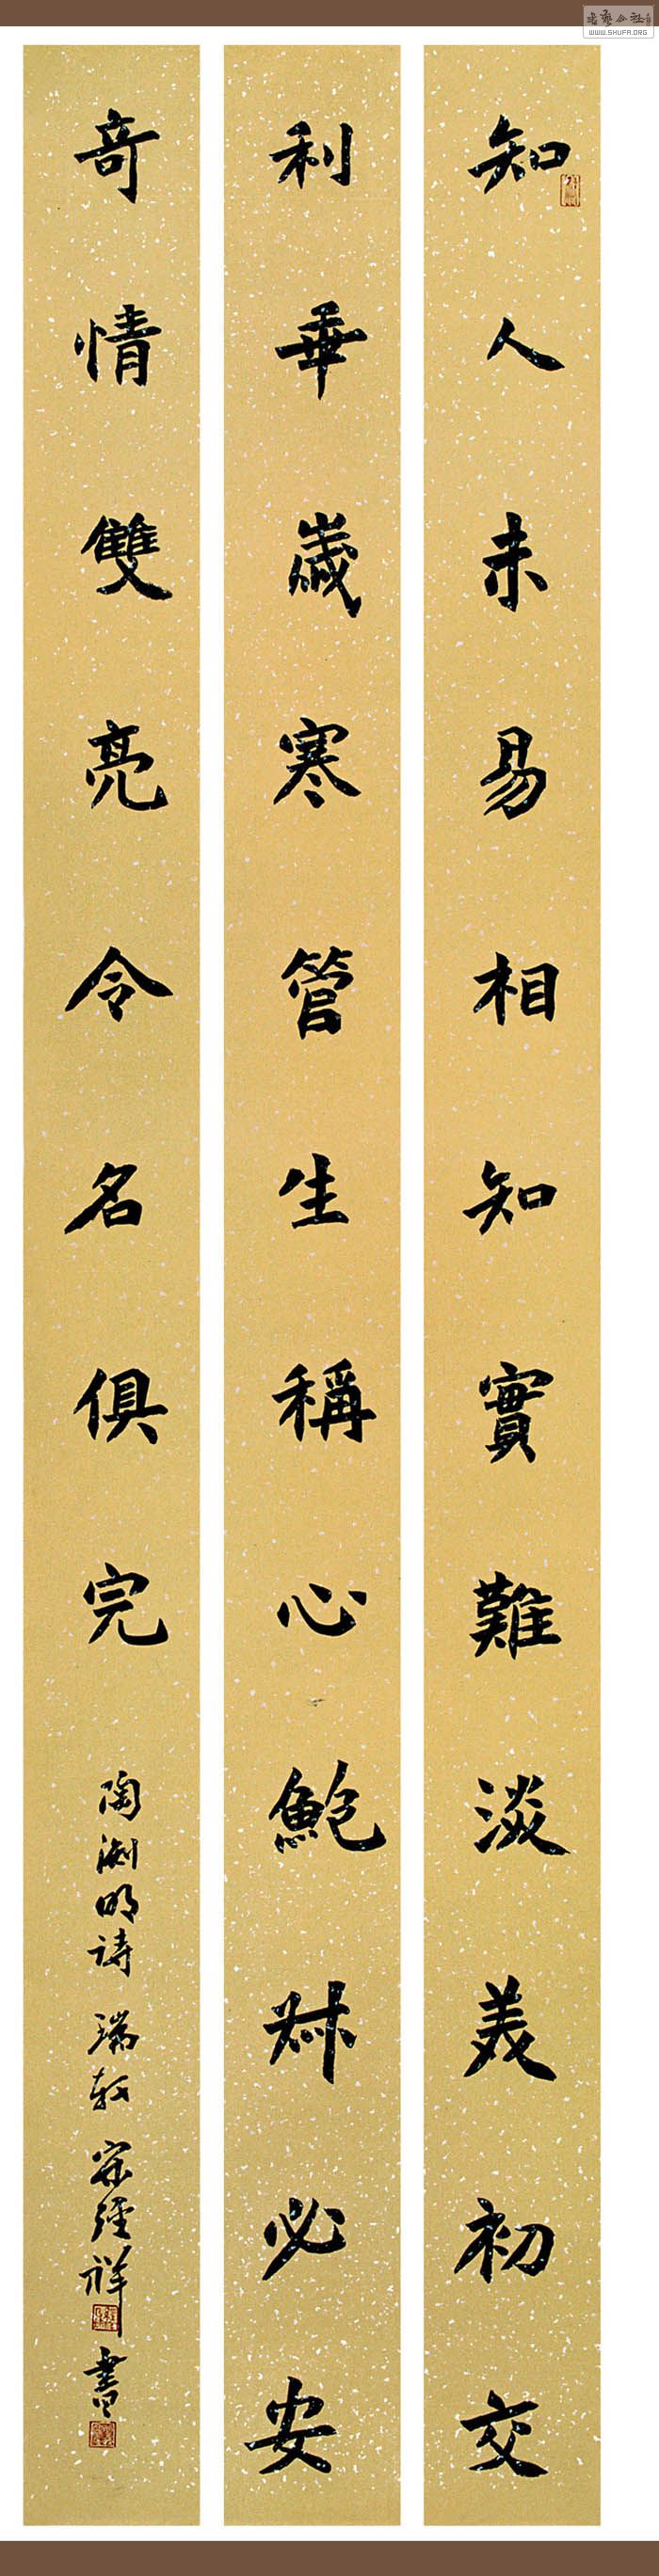 知人未易相知實難淡美初交
利乖歲寒管生稱心鮑叔必安
奇情雙亮令名俱完
陶渊明诗 瑞轩 宋經祥 書
WWW.SHUFA.ORG